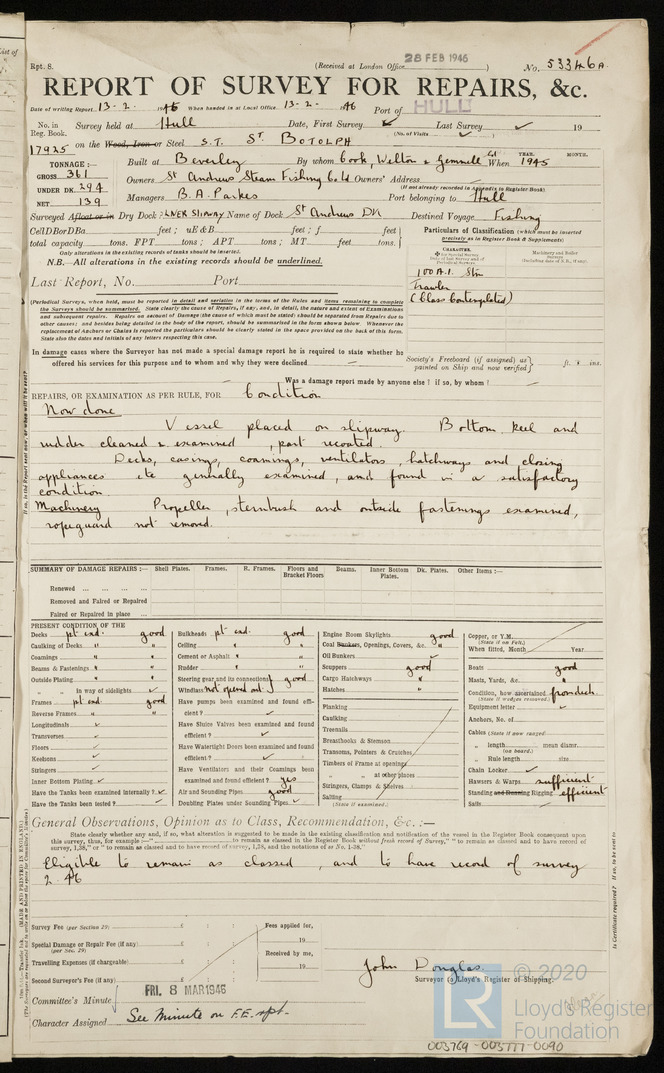 Rpt. 8.
(Received at London Office 28 FEB 1946)
No. 53346A
REPORT OF SURVEY FOR REPAIRS, &c.
Date of writing Report 13-2-1946 When handed in at Local Office 13-2-1946 Port of HULL
No. in Reg. Book. Survey held at Hull Date, First Survey Last Survey 19
(No. of Visits)
17925 on the Wood, Iron or Steel S.T. ST BOTOLPH
TONNAGE:—
GROSS 361
UNDER DK. 294
NET 139
Built at Beverley By whom Cook, Welton & Gemmell Ld When 1945
YEAR. MONTH.
Owners St Andrews Steam Fishing Co Ld Owners' Address
(If not already recorded in Appendix to Register Book)
Managers B.A. Parkes Port belonging to Hull
Surveyed Afloat or in Dry Dock Name of Dock St Andrews Dk Destined Voyage Fishing
Cell DB or DBa feet; uE&B feet; f feet
total capacity tons. FPT tons; APT tons; MT feet tons.
Only alterations in the existing records of tanks should be inserted.
N.B.—All alterations in the existing records should be underlined.
Particulars of Classification (which must be inserted precisely as in Register Book & Supplements)
CHARACTER.
100 A.1. Stm
Trawler
(Class Contemplated)
Last Report, No. Port
(Periodical Surveys, when held, must be reported in detail and seriatim in the terms of the Rules and items remaining to complete
the Surveys should be summarised. State clearly the cause of Repairs, if any, and, in detail, the nature and extent of Examinations
and subsequent repairs. Repairs on account of Damage (the cause of which must be stated) should be separated from Repairs due to
other causes; and besides being detailed in the body of the report, should be summarised in the form shown below. Whenever the
replacement of Anchors or Chains is reported the particulars should be clearly stated in the space provided on the back of this form.
State also the dates and initials of any letters respecting this case.
In damage cases where the Surveyor has not made a special damage report he is required to state whether he
offered his services for this purpose and to whom and why they were declined
Society's Freeboard (if assigned) as painted on Ship and now verified ft. ins.
Was a damage report made by anyone else? if so, by whom?
REPAIRS, OR EXAMINATION AS PER RULE, FOR Condition
Now done
Vessel placed on slipway. Bottom, keel and
rudder cleaned & examined, part recoated.
Decks, casings, coamings, ventilators, hatchways and closing
appliances etc generally examined, and found in a satisfactory
condition.
Machinery Propeller, sternbush and outside fastenings examined,
ropeguard not removed.
SUMMARY OF DAMAGE REPAIRS:—
Shell Plates. Frames. R. Frames. Floors and Bracket Floors Beams. Inner Bottom Plates. Dk. Plates. Other Items:—
Renewed
Removed and Faired or Repaired
Faired or Repaired in place
PRESENT CONDITION OF THE
Decks pt exd. good
Caulking of Decks " "
Coamings " "
Beams & Fastenings " "
Outside Plating " "
" " in way of sidelights
Frames pt exd. good
Reverse Frames " "
Longitudinals
Tranverses
Floors
Keelsons
Stringers
Inner Bottom Plating
Have the Tanks been examined internally?
Have the Tanks been tested?
Bulkheads pt exd. good
Ceiling " "
Cement or Asphalt " "
Rudder " "
Steering gear and its connections good
Windlass not opened out
Have pumps been examined and found efficient?
Have Sluice Valves been examined and found efficient?
Have Watertight Doors been examined and found efficient?
Have Ventilators and their Coamings been examined and found efficient? yes
Air and Sounding Pipes good
Doubling Plates under Sounding Pipes
Engine Room Skylights good
Coal Bunkers, Openings, Covers, &c. "
Oil Bunkers
Scuppers good
Cargo Hatchways "
Hatches
Planking
Caulking
Treenails
Breasthooks & Stemson
Transoms, Pointers & Crutches
Timbers of Frame at openings
" " at other places
Stringers, Clamps & Shelves
Salting
(State if examined.)
Copper, or Y.M.
(State if on Felt.)
When fitted, Month Year
Boats good
Masts, Yards, &c. "
Condition, how ascertained from deck
(State if wedges removed.)
Equipment letter
Anchors, No. of
Cables (State if now ranged)
" length mean diamr.
(on board)
" Rule length size
Chain Locker
Hawsers & Warps sufficient
Standing and Running Rigging efficient
Sails
General Observations, Opinion as to Class, Recommendation, &c. :—
State clearly whether any and, if so, what alteration is suggested to be made in the existing classification and notification of the vessel in the Register Book consequent upon
this survey, thus, for example:—" to remain as classed in the Register Book without fresh record of Survey," "to remain as classed and to have record of
survey, 1,38," or "to remain as classed and to have record of survey, 1,38, and the notations of as No. 1-38."
Eligible to remain as classed, and to have record of survey
2.46
Survey Fee (per Section 29) £ : :
Special Damage or Repair Fee (if any) £ : :
(per Sec. 29)
Travelling Expenses (if chargeable) £ : :
Second Surveyor's Fee (if any) £ : :
Fees applied for,
19
Received by me,
19
John Douglas.
Surveyor to Lloyd's Register of Shipping.
Committee's Minute FRI. 8 MAR 1946
Character Assigned See Minute on F.E. rpt.
© 2020
LR
Lloyd's Register
Foundation
003769-003777-0090